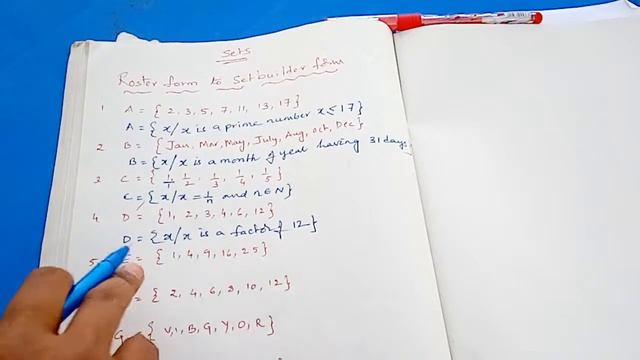 Sets
Roster form to Setbuilder form
1 A = { 2, 3, 5, 7, 11, 13, 17}
A = {x/x is a prime number x ≤ 17}
2 B = {Jan, Mar, May, July, Aug, Oct, Dec}
B = {x/x is a month of year having 31 days}
3 C = { 1/1, 1/2, 1/3, 1/4, 1/5}
C = {x/x = 1/n and n ∈ N}
4 D = {1, 2, 3, 4, 6, 12}
D = {x/x is a factor of 12}
5 = { 1, 4, 9, 16, 25}
= { 2, 4, 6, 8, 10, 12}
G = { V, I, B, G, Y, O, R}